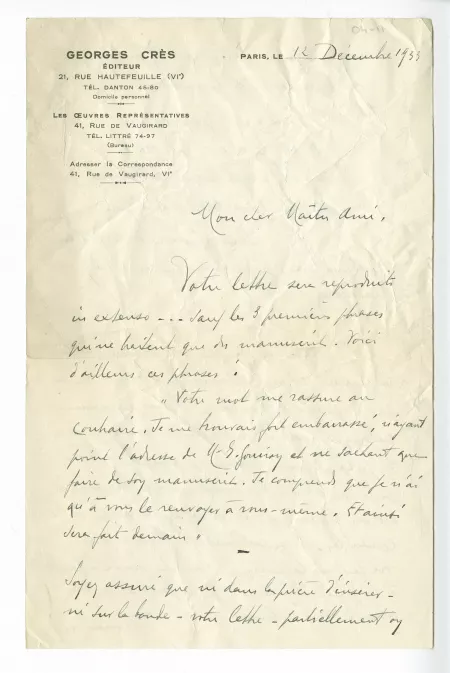 04-11
GEORGES CRÈS
ÉDITEUR
21, RUE HAUTEFEUILLE (VIe)
TÉL. DANTON 45-80
Domicile personnel
LES ŒUVRES REPRÉSENTATIVES
41, RUE DE VAUGIRARD
TÉL. LITTRÉ 74-97
(Bureau)
Adresser la Correspondance
41, Rue de Vaugirard, VIe
PARIS, LE 12 Decembre 1933
Mon cher Maître Ami,
Votre lettre sera reproduite
in extenso --- sauf les 3 premiers phrases
qui ne traitent que du manuscrit. Voici
d'ailleurs ces phrases :
" Votre mot me rassure au
contraire. Je me trouvais fort embarrassé, n'ayant
point l'adresse de et ne sachant que
faire de son manuscrit. Je comprends que je n'ai
qu'à vous le renvoyer à vous-même. Et ainsi
sera fait demain "
Soyez assuré que ni dans la prière d'insérer -
ni sur la bande - votre lettre - partiellement ou